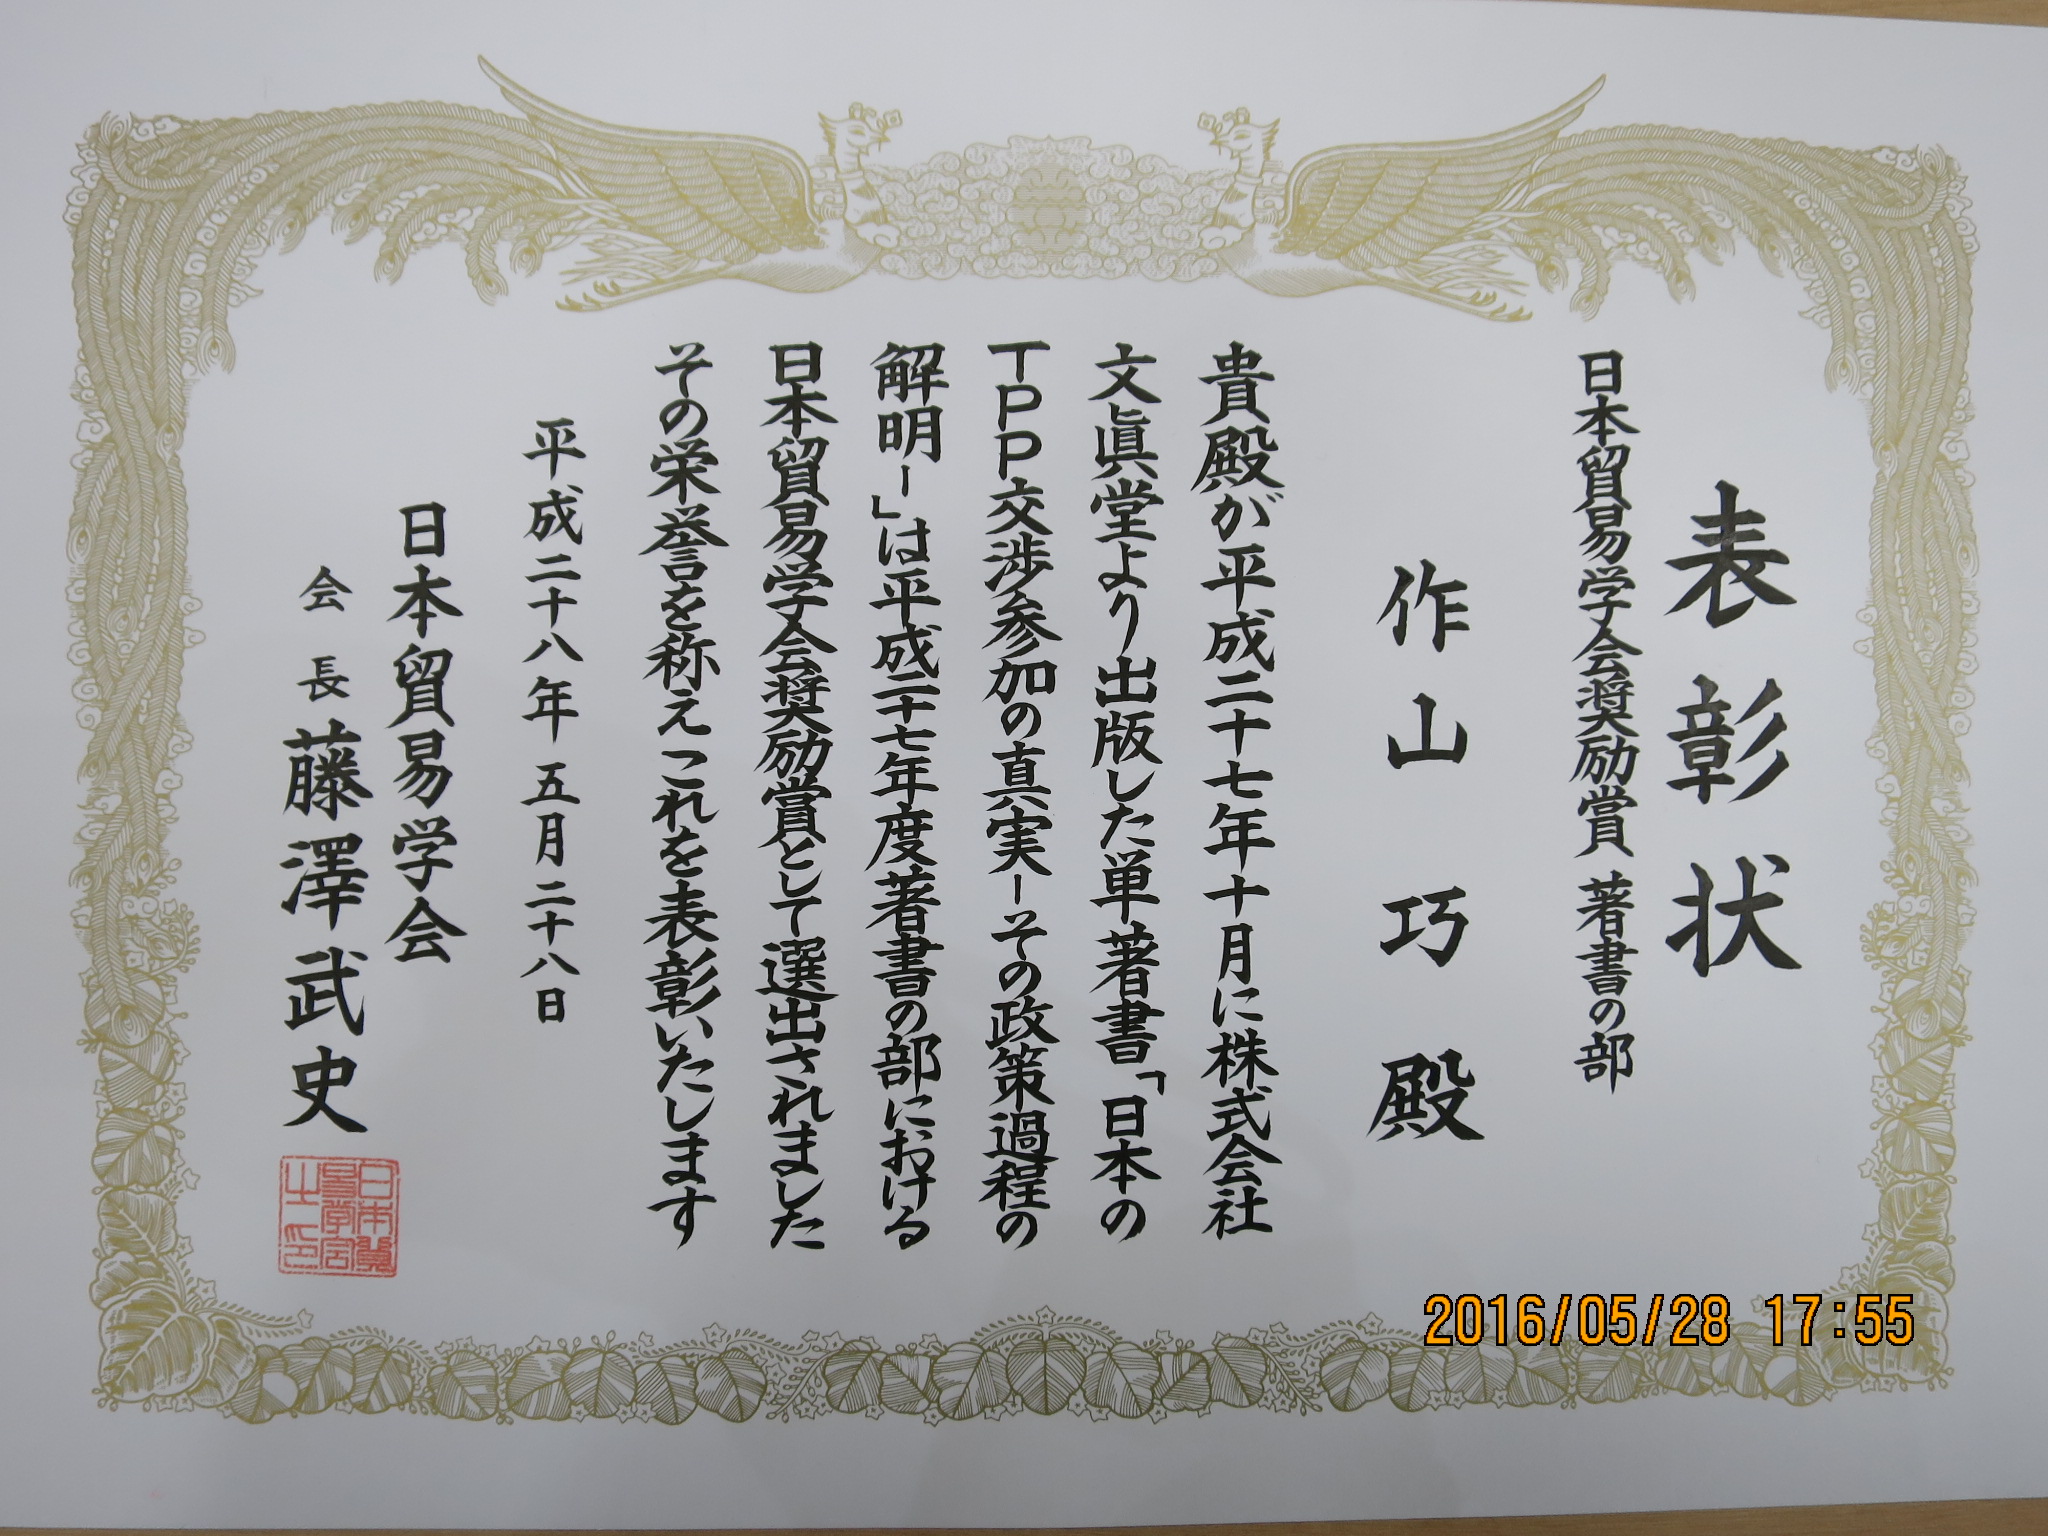 表彰状
日本貿易学会奨励賞 著書の部
作山巧殿
貴殿が平成二十七年十月に株式会社
文眞堂より出版した単著書「日本の
TPP交渉参加の真実ーその政策過程の
解明ー」は平成二十七年度著書の部における
日本貿易学会奨励賞として選出されました
その栄誉を称えこれを表彰いたします
平成二十八年五月二十八日
日本貿易学会
会長 藤澤武史
日本貿
易学会
之印
2016/05/28 17:55